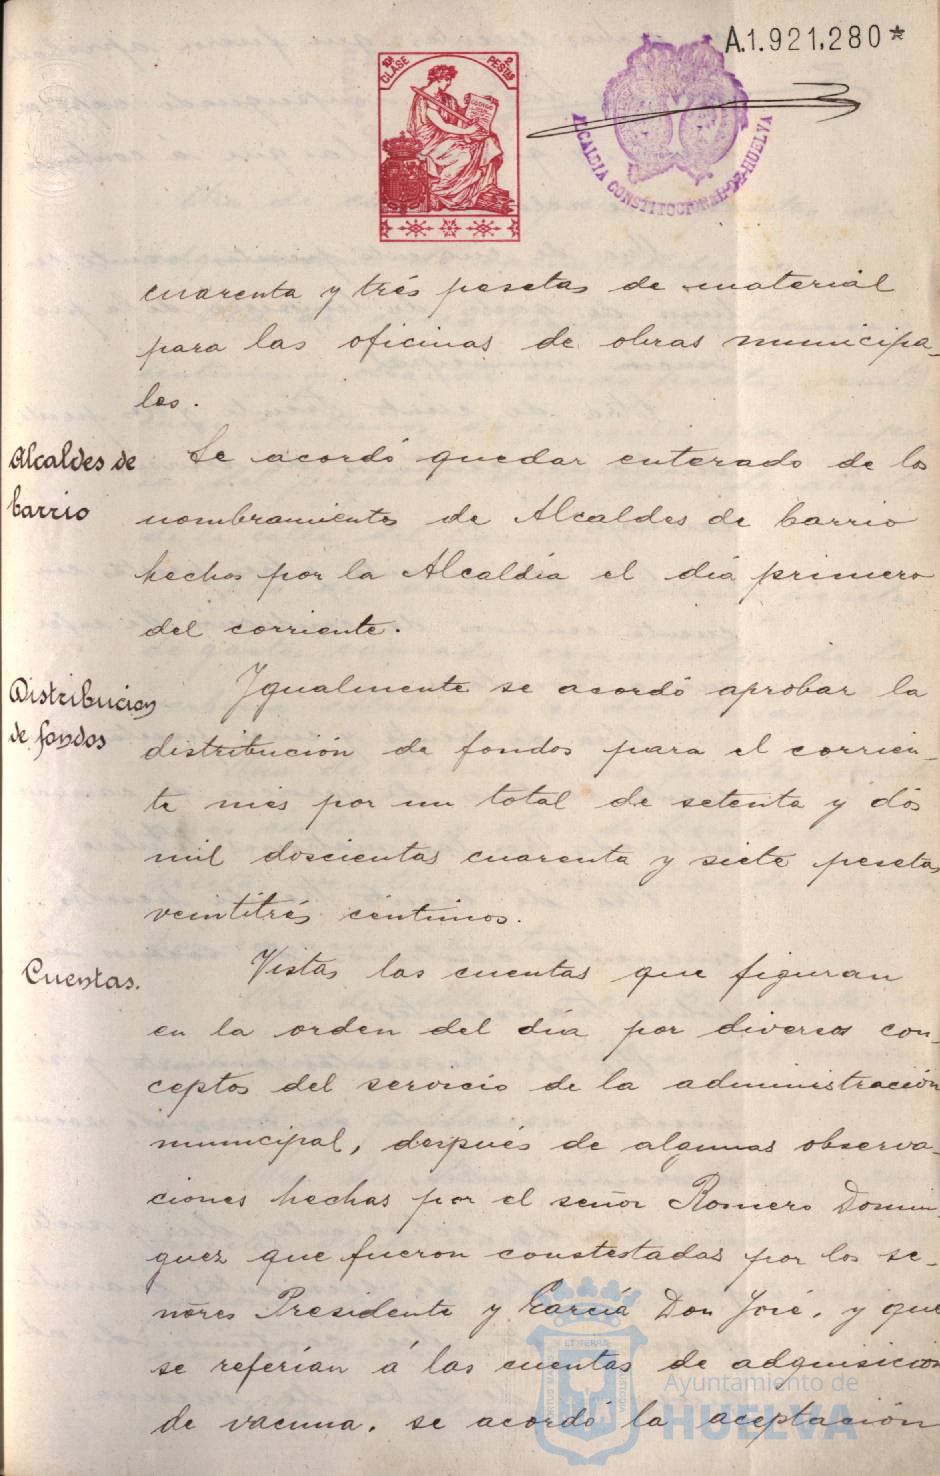 A.1.921,280*
10ª CLASE
2 PESETAS
ALCALDIA CONSTITUCIONAL-DE-HUELVA
cuarenta y trés pesetas de material
para las oficinas de obras municipa-
les.
Alcaldes de
barrio
Se acordó quedar enterado de los
nombramientos de Alcaldes de barrio
hechos por la Alcaldía el día primero
del corriente.
Distribución
de fondos
Igualmente se acordó aprobar la
distribución de fondos para el corrien-
te mes por un total de setenta y dós
mil doscientas cuarenta y siete pesetas
veintitrés céntimos.
Cuentas.
Vistas las cuentas que figuran
en la orden del día por diversos con-
ceptos del servicio de la administración
municipal, después de algunas observa-
ciones hechas por el señor Romero Domin-
guez que fueron constestadas por los se-
ñores Presidente y García Don José, y que
se referían á las cuentas de adquisición
de vacuna, se acordó la aceptación
Ayuntamiento de
HUELVA